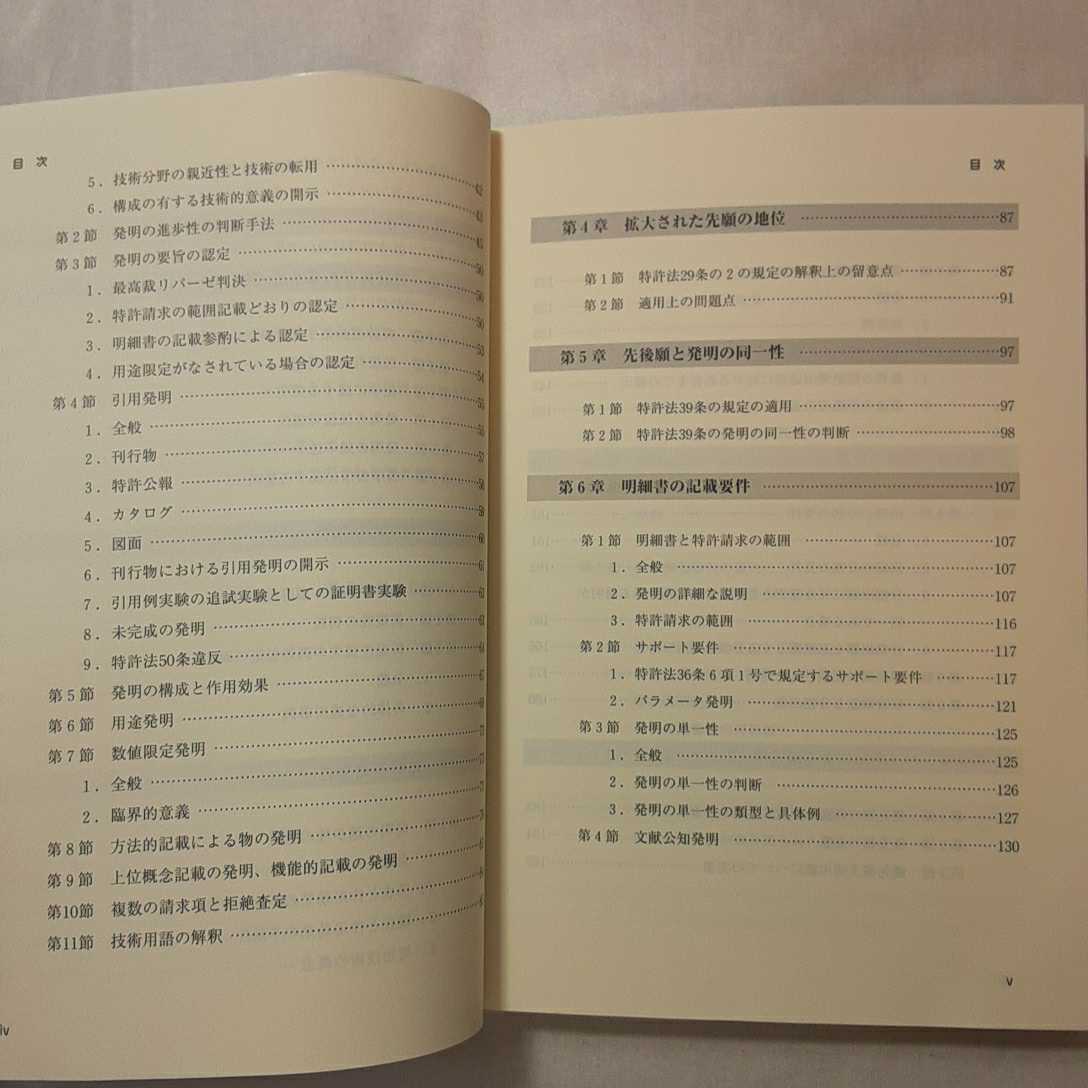 目 次
5．技術分野の親近性と技術の転用 ……62
6．構成の有する技術的意義の開示 ……
第2節 発明の進歩性の判断手法 ……
第3節 発明の要旨の認定 ……
1．最高裁リパーゼ判決 ……
2．特許請求の範囲記載どおりの認定 ……50
3．明細書の記載参酌による認定 ……53
4．用途限定がなされている場合の認定 ……54
第4節 引用発明 ……55
1．全般 ……55
2．刊行物 ……57
3．特許公報 ……58
4．カタログ ……59
5．図面 ……60
6．刊行物における引用発明の開示 ……61
7．引用例実験の追試実験としての証明書実験 ……63
8．未完成の発明 ……63
9．特許法50条違反 ……64
第5節 発明の構成と作用効果 ……
第6節 用途発明 ……
第7節 数値限定発明 ……
1．全般 ……
2．臨界的意義 ……
第8節 方法的記載による物の発明 ……
第9節 上位概念記載の発明、機能的記載の発明 ……
第10節 複数の請求項と拒絶査定 ……
第11節 技術用語の解釈 ……
iv
目 次
第4章 拡大された先願の地位 ……87
第1節 特許法29条の2の規定の解釈上の留意点 ……87
第2節 適用上の問題点 ……91
第5章 先後願と発明の同一性 ……97
第1節 特許法39条の規定の適用 ……97
第2節 特許法39条の発明の同一性の判断 ……98
第6章 明細書の記載要件 ……107
第1節 明細書と特許請求の範囲 ……107
1．全般 ……107
2．発明の詳細な説明 ……107
3．特許請求の範囲 ……116
第2節 サポート要件 ……117
1．特許法36条6項1号で規定するサポート要件 ……117
2．パラメータ発明 ……121
第3節 発明の単一性 ……125
1．全般 ……125
2．発明の単一性の判断 ……126
3．発明の単一性の類型と具体例 ……127
第4節 文献公知発明 ……130
v